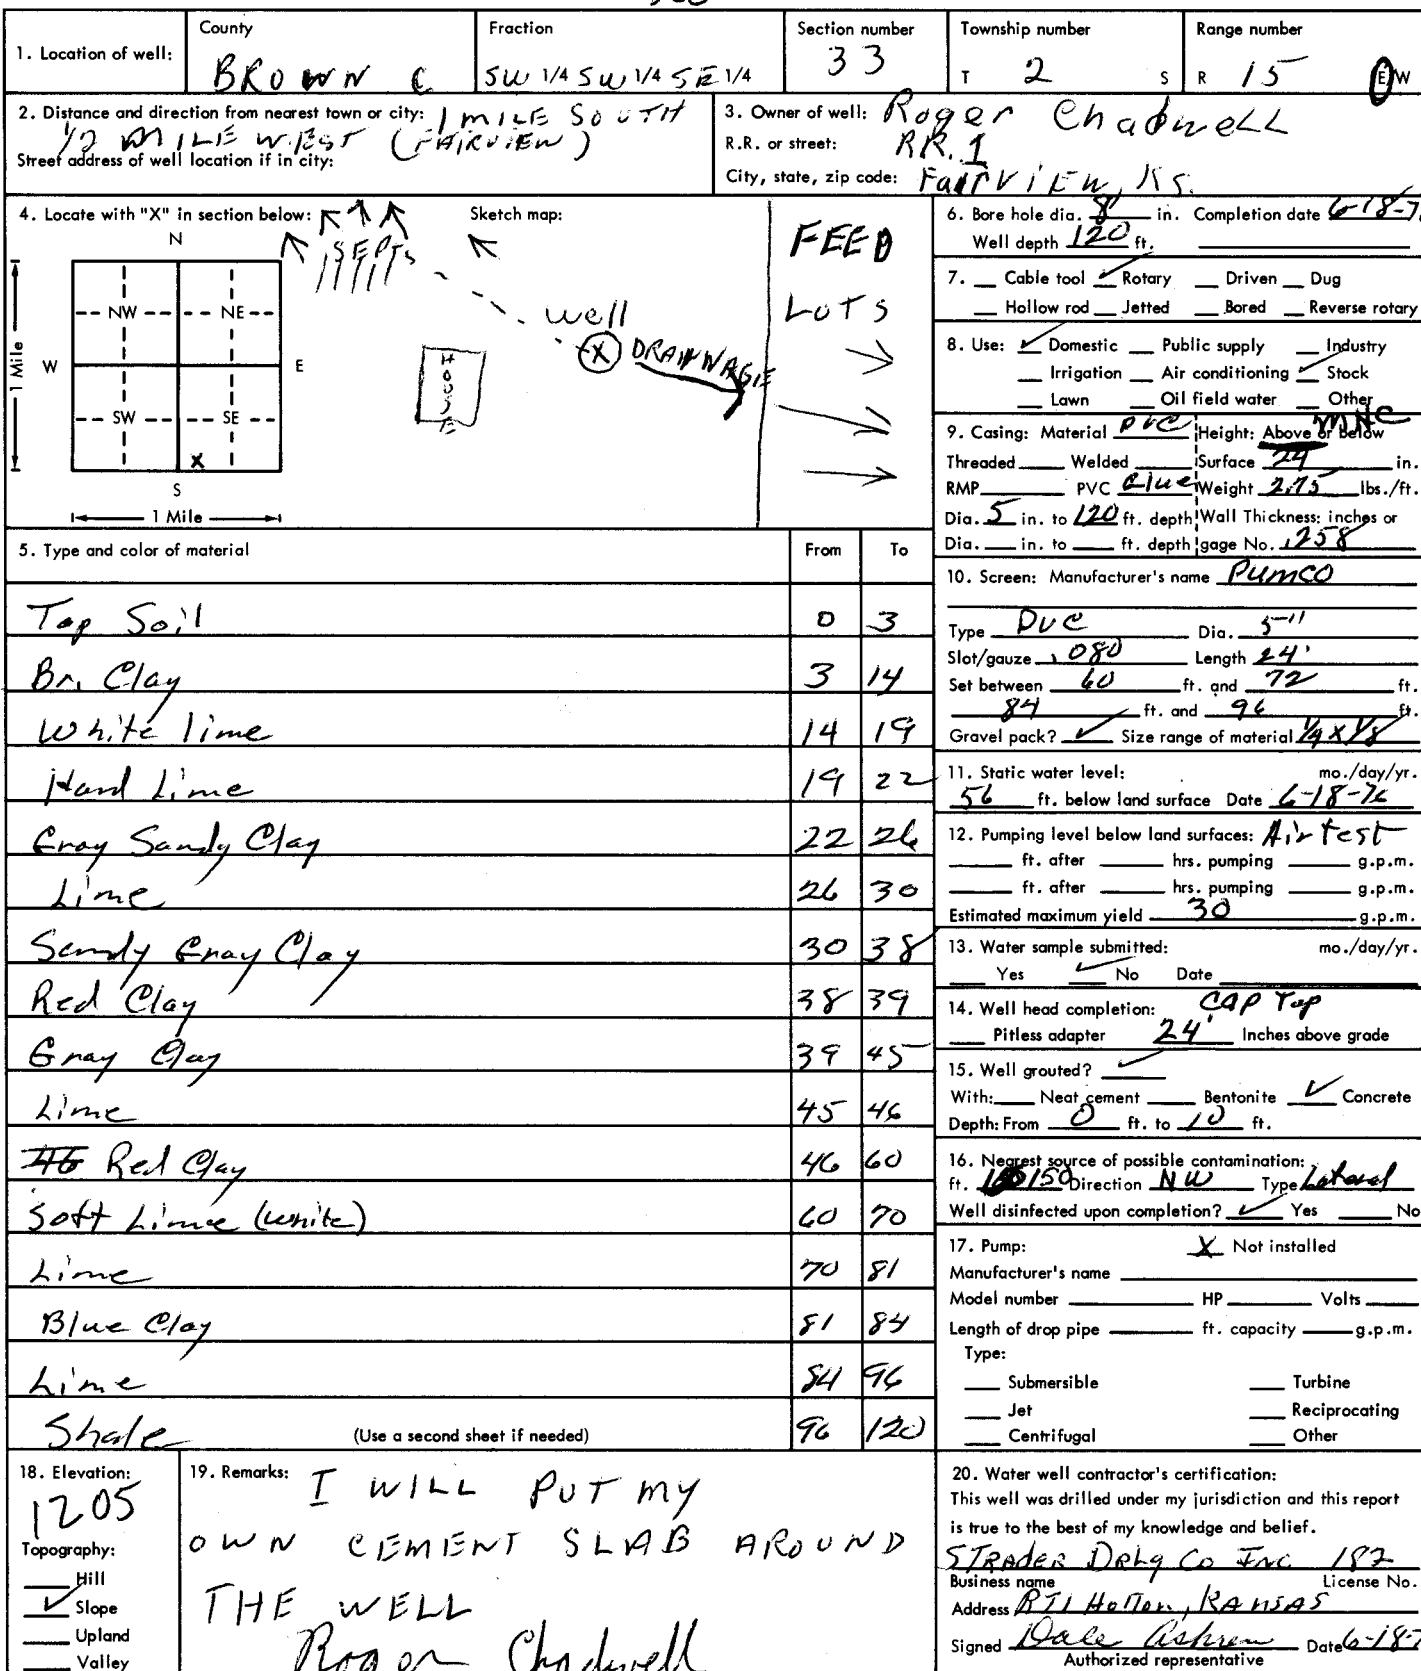 County Fraction Section number Township number Range number
1. Location of well: BROWN C SW 1/4 SW 1/4 SE 1/4 33 T 2 S R 15 E W
2. Distance and direction from nearest town or city: 1 MILE SOUTH
1/2 MILE WEST (FAIRVIEW)
Street address of well location if in city:
3. Owner of well: Roger Chadwell
R.R. or street: RR. 1
City, state, zip code: FairVIEW, KS.
4. Locate with "X" in section below: Sketch map:
N
NW NE
W E
SW SE
X
S
1 Mile
1 Mile
SEPT
well
X
DRAINNAGE
HOUSE
FEED
LOTS
5. Type and color of material From To
Top Soil 0 3
Br. Clay 3 14
White lime 14 19
Hard Lime 19 22
Gray Sandy Clay 22 26
Lime 26 30
Sandy Gray Clay 30 38
Red Clay 38 39
Gray Clay 39 45
Lime 45 46
Red Clay 46 60
Soft Lime (white) 60 70
Lime 70 81
Blue Clay 81 84
Lime 84 96
Shale (Use a second sheet if needed) 96 120
6. Bore hole dia. 8 in. Completion date 6-18-7
Well depth 120 ft.
7. Cable tool ✓ Rotary Driven Dug
Hollow rod Jetted Bored Reverse rotary
8. Use: ✓ Domestic Public supply Industry
Irrigation Air conditioning ✓ Stock
Lawn Oil field water Other
9. Casing: Material PVC Height: Above or below
Threaded Welded Surface 24 in.
RMP PVC Glue Weight 2.75 lbs./ft.
Dia. 5 in. to 120 ft. depth Wall Thickness: inches or
Dia. in. to ft. depth gage No. .258
10. Screen: Manufacturer's name PUMCO
Type PVC Dia. 5"
Slot/gauze .080 Length 24'
Set between 60 ft. and 72 ft.
84 ft. and 96 ft.
Gravel pack? ✓ Size range of material 1/4 X 1/8
11. Static water level: mo./day/yr.
56 ft. below land surface Date 6-18-76
12. Pumping level below land surfaces: Air test
ft. after hrs. pumping g.p.m.
ft. after hrs. pumping g.p.m.
Estimated maximum yield 30 g.p.m.
13. Water sample submitted: mo./day/yr.
Yes ✓ No Date
14. Well head completion: CAP Top
Pitless adapter 24' Inches above grade
15. Well grouted? ✓
With: Neat cement Bentonite ✓ Concrete
Depth: From 0 ft. to 10 ft.
16. Nearest source of possible contamination:
ft. 150 Direction NW Type Lateral
Well disinfected upon completion? ✓ Yes No
17. Pump: X Not installed
Manufacturer's name
Model number HP Volts
Length of drop pipe ft. capacity g.p.m.
Type:
Submersible Turbine
Jet Reciprocating
Centrifugal Other
18. Elevation:
1205
Topography:
Hill
✓ Slope
Upland
Valley
19. Remarks: I WILL PUT MY
OWN CEMENT SLAB AROUND
THE WELL
Roger Chadwell
20. Water well contractor's certification:
This well was drilled under my jurisdiction and this report
is true to the best of my knowledge and belief.
STRADER DRLG CO INC 182
Business name License No.
Address RT1 Holton, KANSAS
Signed Dale Date 6-18-7
Authorized representative